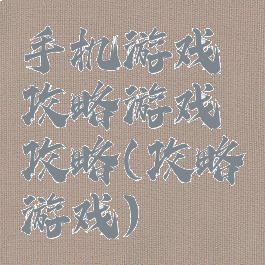 手机游戏
攻略游戏
攻略(攻略
游戏)